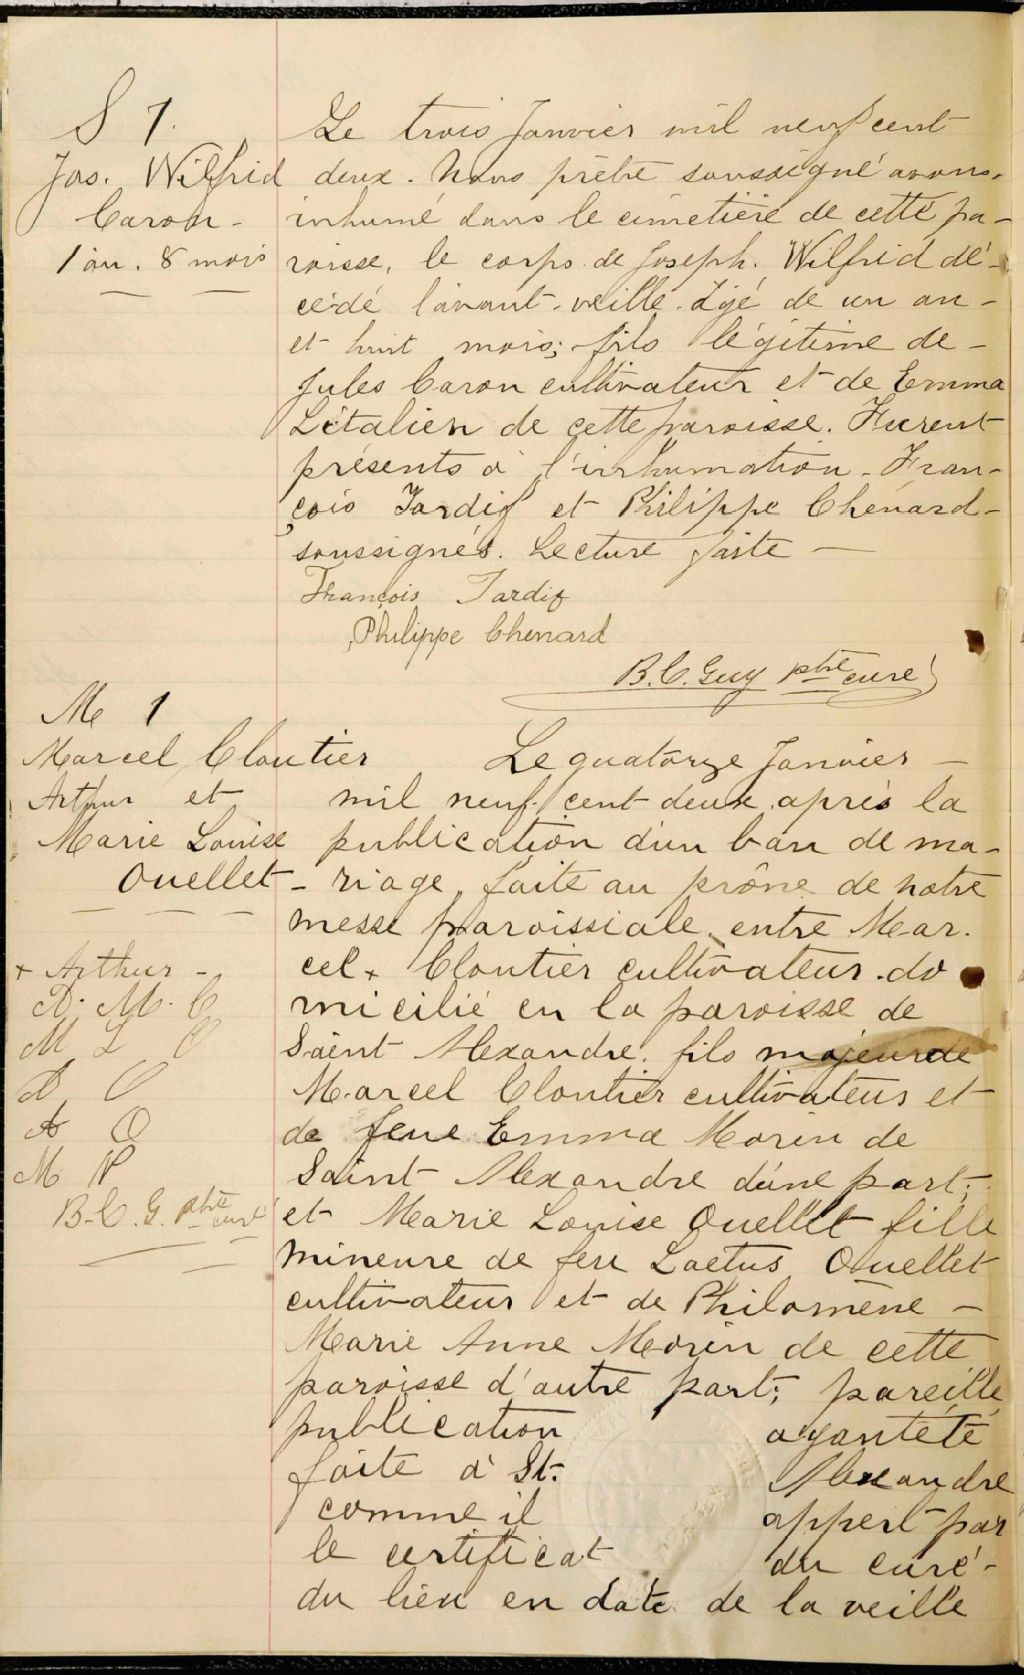 S 1.
Jos. Wilfrid
Caron -
1 an. 8 mois
Le trois Janvier mil neuf cent
deux. Nous prêtre soussigné avons
inhumé dans le cimetière de cette pa-
roisse, le corps de Joseph. Wilfrid dé-
cédé l'avant-veille. âgé de un an -
et huit mois; fils légitime de -
Jules Caron cultivateur et de Emma
Létalien de cette paroisse. Furent
présents à l'inhumation - Fran-
çois Tardif et Philippe Chénard -
soussignés. Lecture faite —
François Tardif
Philippe Chenard
B. C. Guy ptre curé
M 1
Marcel Cloutier
Arthur et
Marie Louise
Ouellet -
+ Arthur -
A. M. C
M L O
A O
M P
B.C. G. ptre curé
Le quatorze Janvier —
mil neuf cent deux, après la
publication d'un ban de ma-
riage, faite au prône de notre
messe paroissiale, entre Mar.
cel + Cloutier cultivateur. do
micilié en la paroisse de
Saint Alexandre. fils majeur de
Marcel Cloutier cultivateur et
de feue Emma Morin de
Saint Alexandre d'une part;
et Marie Louise Ouellet fille
mineure de feu Laetus Ouellet
cultivateur et de Philomène —
Marie Anne Morin de cette
paroisse d'autre part; pareille
publication ayant été
faite à St. Alexandre
comme il appert par
le certificat du curé -
du lieu en date de la veille